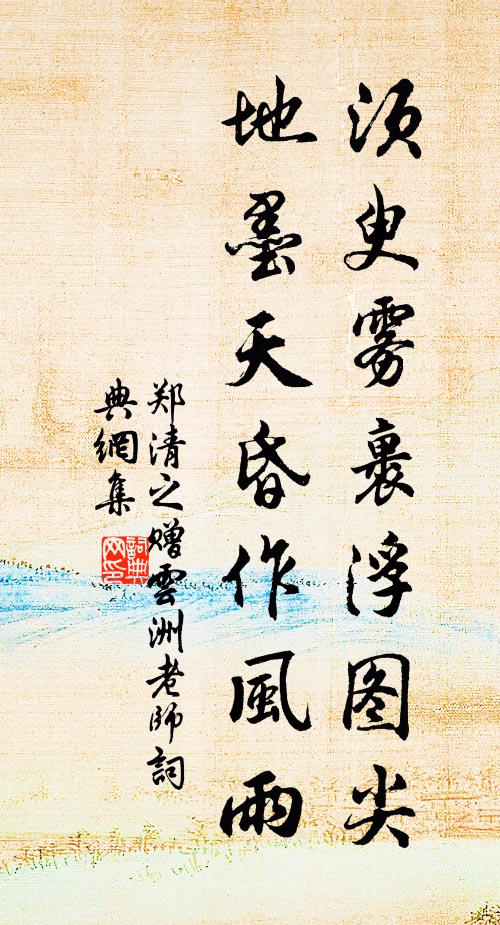 须臾雾裹浮图尖
地墨天昏作風雨
郑清之贈雲洲老師詞
典網集
詞典
网印